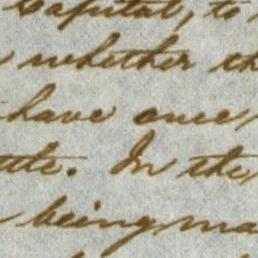 capital, to
whether th
have once
ttle. In the
being ma